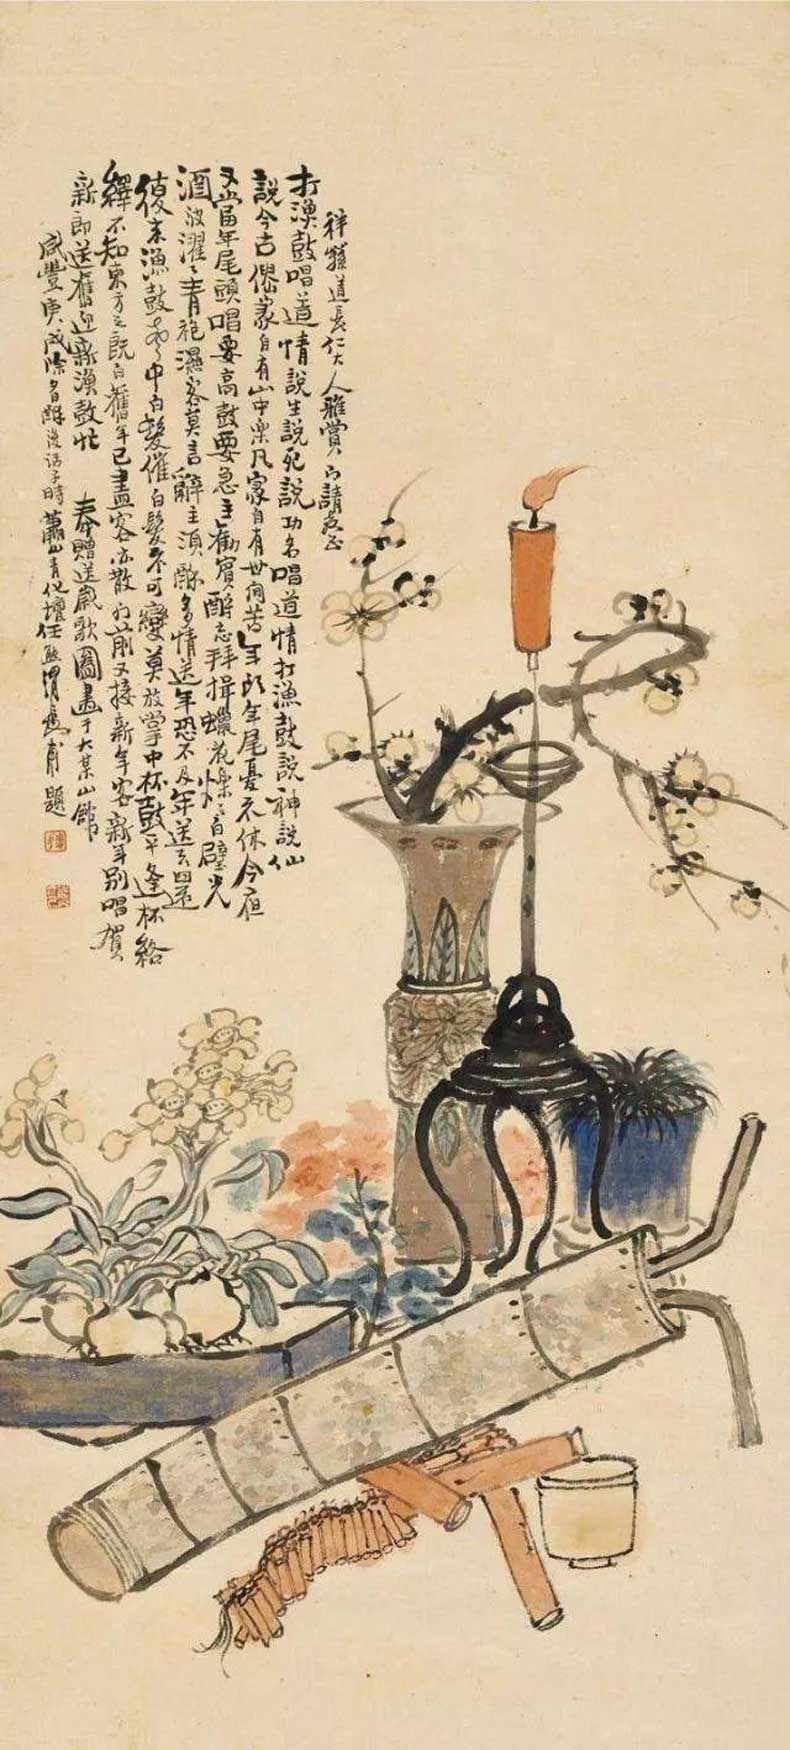 祥孫道長仁大人雅賞 即請教正
打漁鼓唱道情說生說死說功名唱道情打漁鼓說神說仙
說今古僊家自有山中樂凡家自有世間苦年頭年尾憂不休今夜
又當年尾頭唱要高鼓要急主勸賓酬忘拜揖蠟花爍爍有壁光
酒波濯濯青袍濕客莫言辭主須酬多情送年恐不及年送去曰還
復來漁鼓聲中白髮催白髮不可變莫放掌中杯鼓乎逢杯絡
繹不知東方之既白舊年已盡客亦散面前又接新年客新年別唱賀
新郎送舊迎新漁鼓忙 奉贈送歲歌圖畫于大某山館
咸豐庚戌除夕酬後話子時蕭山青化壇任熊渭長甫題